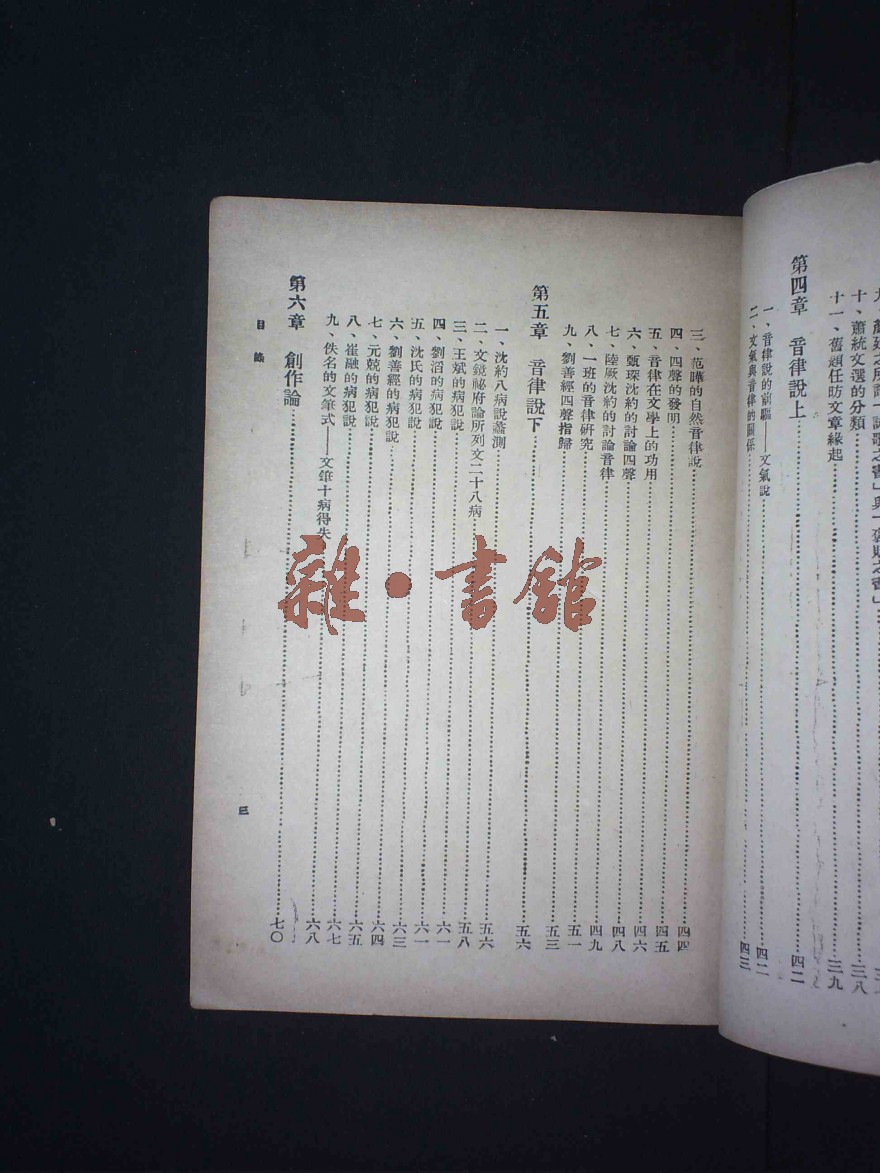 十、蕭統文選的分類 三八
十一、舊題任昉文章緣起 三九
第四章 音律說上 四二
一、音律說的前驅——文氣說 四二
二、文氣與音律的關係 四三
三、范曄的自然音律說 四四
四、四聲的發明 四五
五、音律在文學上的功用 四六
六、甄琛沈約的討論四聲 四八
七、陸厥沈約的討論音律 四九
八、一班的音律研究 五一
九、劉善經四聲指歸 五三
第五章 音律說下 五六
一、沈約八病說蠡測 五六
二、文鏡祕府論所列文二十八病 五八
三、王斌的病犯說 六一
四、劉滔的病犯說 六一
五、沈氏的病犯說 六三
六、劉善經的病犯說 六四
七、元兢的病犯說 六五
八、崔融的病犯說 六七
九、佚名的文筆式——文筆十病得失 六八
第六章 創作論 七〇
目錄
三
雜·書館